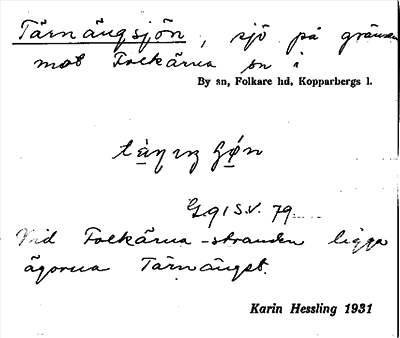 Tärnängsjön, sjö på gränsen
mot Folkärna sn i
By sn, Folkare hd, Kopparbergs l.
S.V. 79
Vid Folkärna-stranden ligga
ägorna Tärnänget.
Karin Hessling 1931